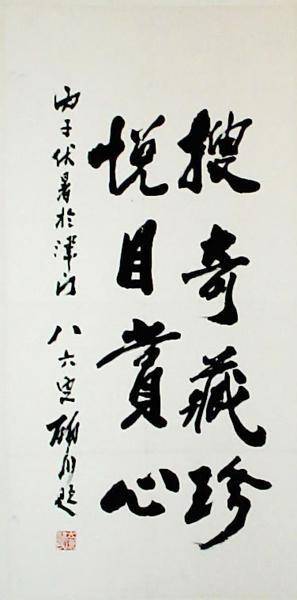 搜奇藏珍
悦目賞心
丙子伏暑於津门 八六叟 题